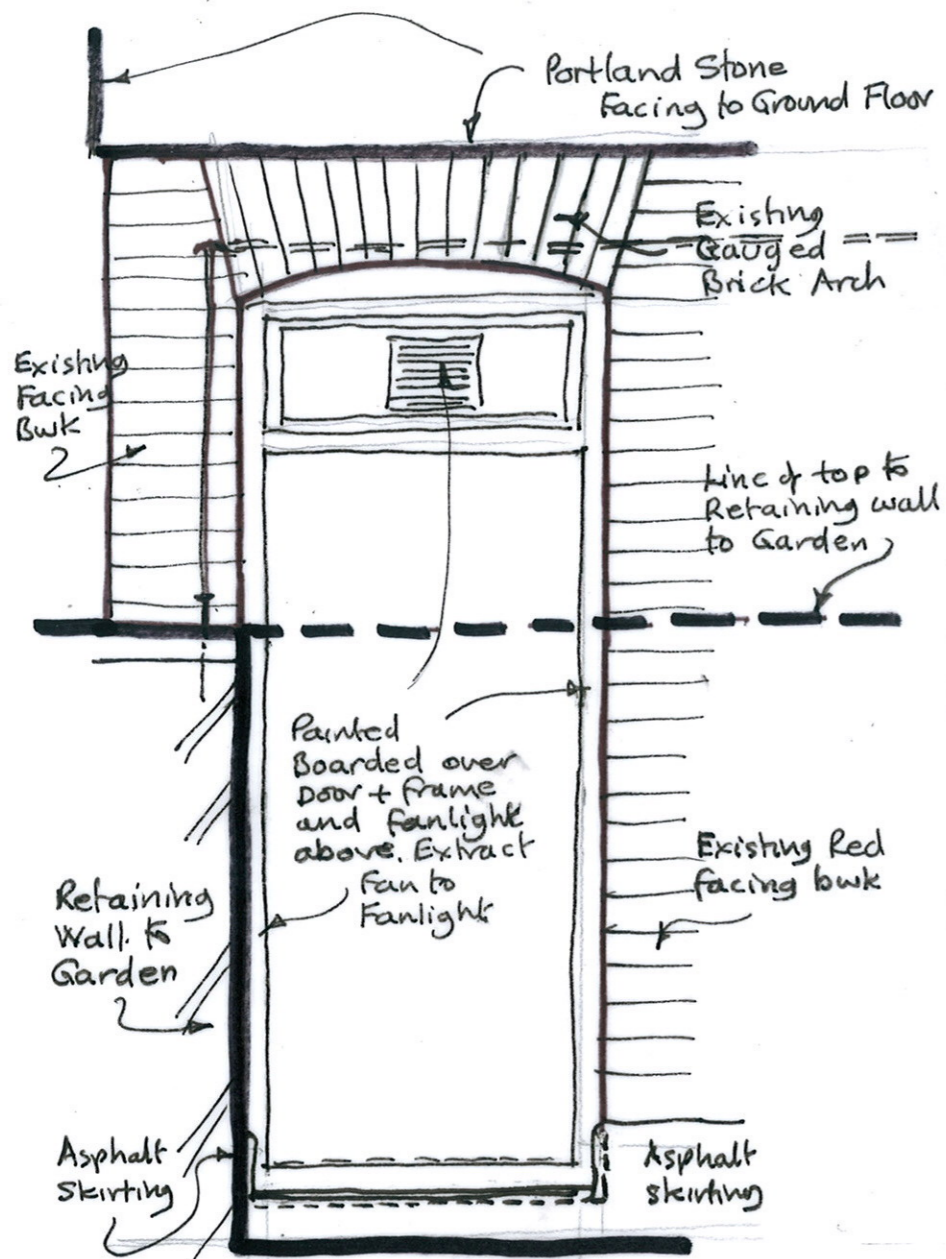 Portland Stone
Facing to Ground Floor
Existing
Gauged
Brick Arch
Existing
Facing
Bwk
Line of top to
Retaining wall
to Garden
Painted
Boarded over
Door + frame
and fanlight
above. Extract
Fan to
Fanlight
Existing Red
facing bwk
Retaining
Wall to
Garden
Asphalt
Skirting
Asphalt
skirting